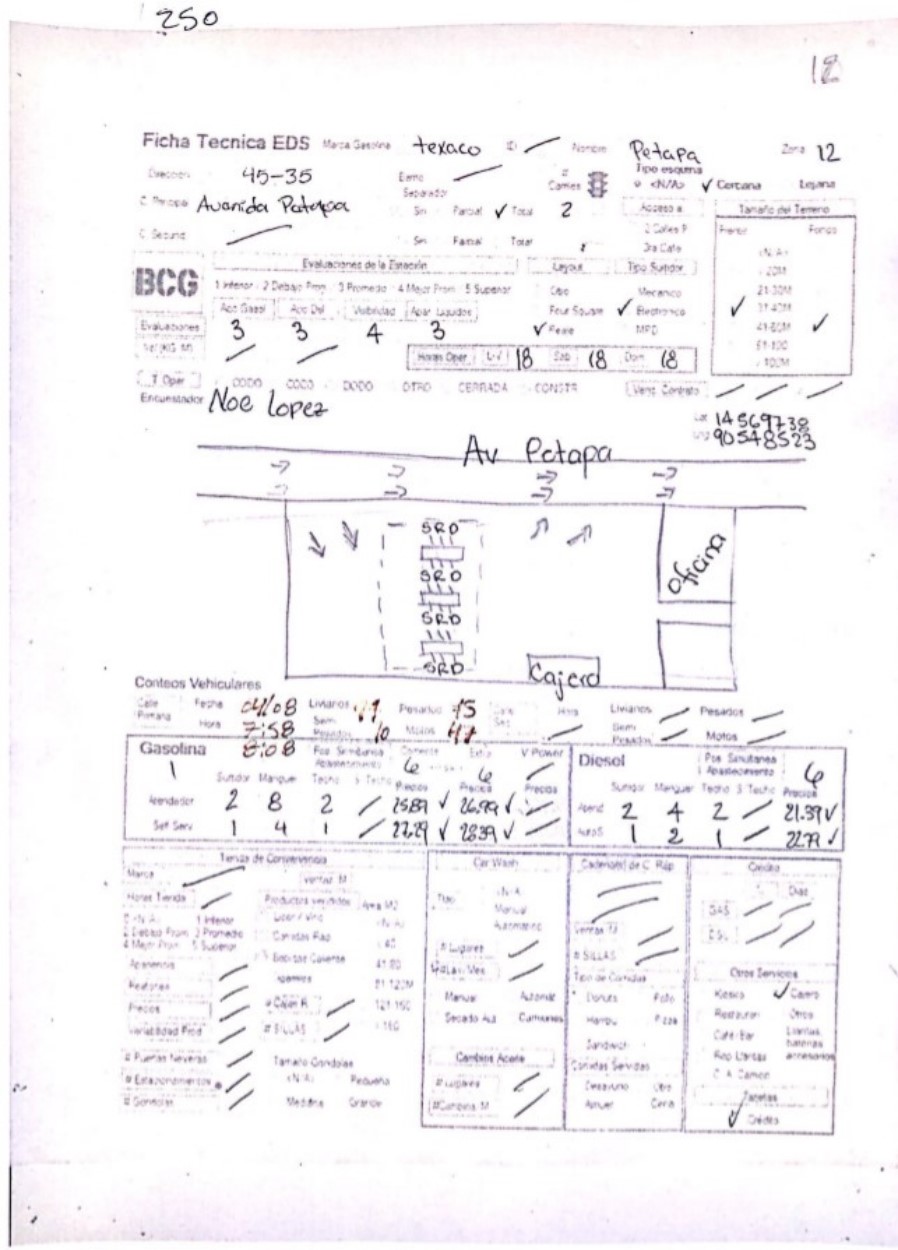 250
18
Ficha Tecnica EDS Marca Gasolina texaco ID Nombre Petapa Zona 12
Dirección 45-35 Separador # Carriles Tipo esquina <N/A> ✓ Cercana Lejana
C. Principal Avenida Petapa Sin Parcial ✓ Total 2 Acceso a Tamaño del Terreno
2 Calles P Frente Fondo
C. Secund Sin Parcial Total 3ra Calle <N/A>
BCG Evaluaciones de la Estación Layout Tipo Surtidor < 20M
1 Inferior 2 Debajo Prom 3 Promedio 4 Mejor Prom 5 Superior Otro Mecanico 21-30M
Apo Gasol Apo Dsl Visibilidad Apar. Liquidos Four Square ✓ Electronico ✓ 31-40M
Evaluaciones 3 3 4 3 ✓ Feale MPD 41-60M ✓
61-100
Horas Oper L-V 18 Sab 18 Dom 18 > 100M
T Oper CODO COCO DODO OTRO CERRADA CONSTR Venc Contrato
Encuestador Noe Lopez
Lat 14569738
Lng 90548523
Av Petapa
SRD
SRD
SRD
SRD
Oficina
Cajero
Conteos Vehiculares
Calle Primaria Fecha 04/08 Livianos Pesados 15 Calle Sec Hora Livianos Pesados
Hora 7:58 Semi Pesados 10 Motos Semi Pesados Motos
8:08
Gasolina Pos Simultanea Abastecimiento Corriente 6 Extra 6 V Power Diesel Pos Simultanea Abastecimiento 6
1
Surtidor Manguer Techo S Techo Precios Precios Precios Surtidor Manguer Techo S Techo Precios
Atendedor 2 8 2 25.89 ✓ 26.99 ✓ Atend 2 4 2 21.39 ✓
Self Serv 1 4 1 27.29 ✓ 28.39 ✓ AutoS 1 2 1 22.79 ✓
Tienda de Conveniencia Car Wash Cadena(s) de C. Rap Credito
Marca Ventas M <N/A> Dias
Horas Tienda Productos vendidos Area M2 Tipo Manual GAS
<N/A> 1 Inferior Licor / Vino <N/A> Automatico Ventas M DSL
2 Debajo Prom 3 Promedio Comidas Rap < 40 # Lugares # SILLAS
4 Mejor Prom 5 Superior Bebidas Caliente 41-80 #Lav. Mes Tipo de Comidas Otros Servicios
Apariencia 81-120M Manual Automat Donuts Pollo Kiosco ✓ Cajero
Precios # Cajas R 121-160 Secado Aut Camiones Hambu Pizza Restauran Otros
Variabilidad Prod # SILLAS > 160 Sandwich Café-Bar Llantas, baterias accesorios
# Puertas Neveras Tamaño Gondolas Cambios Aceite Comidas Servidas Rep Llantas
# Estacionamientos <N/A> Pequeña # Lugares Desayuno Otro C. A. Camion
# Gondolas Mediana Grande #Cambios M Almuer Cena Tarjetas
✓ Crédito